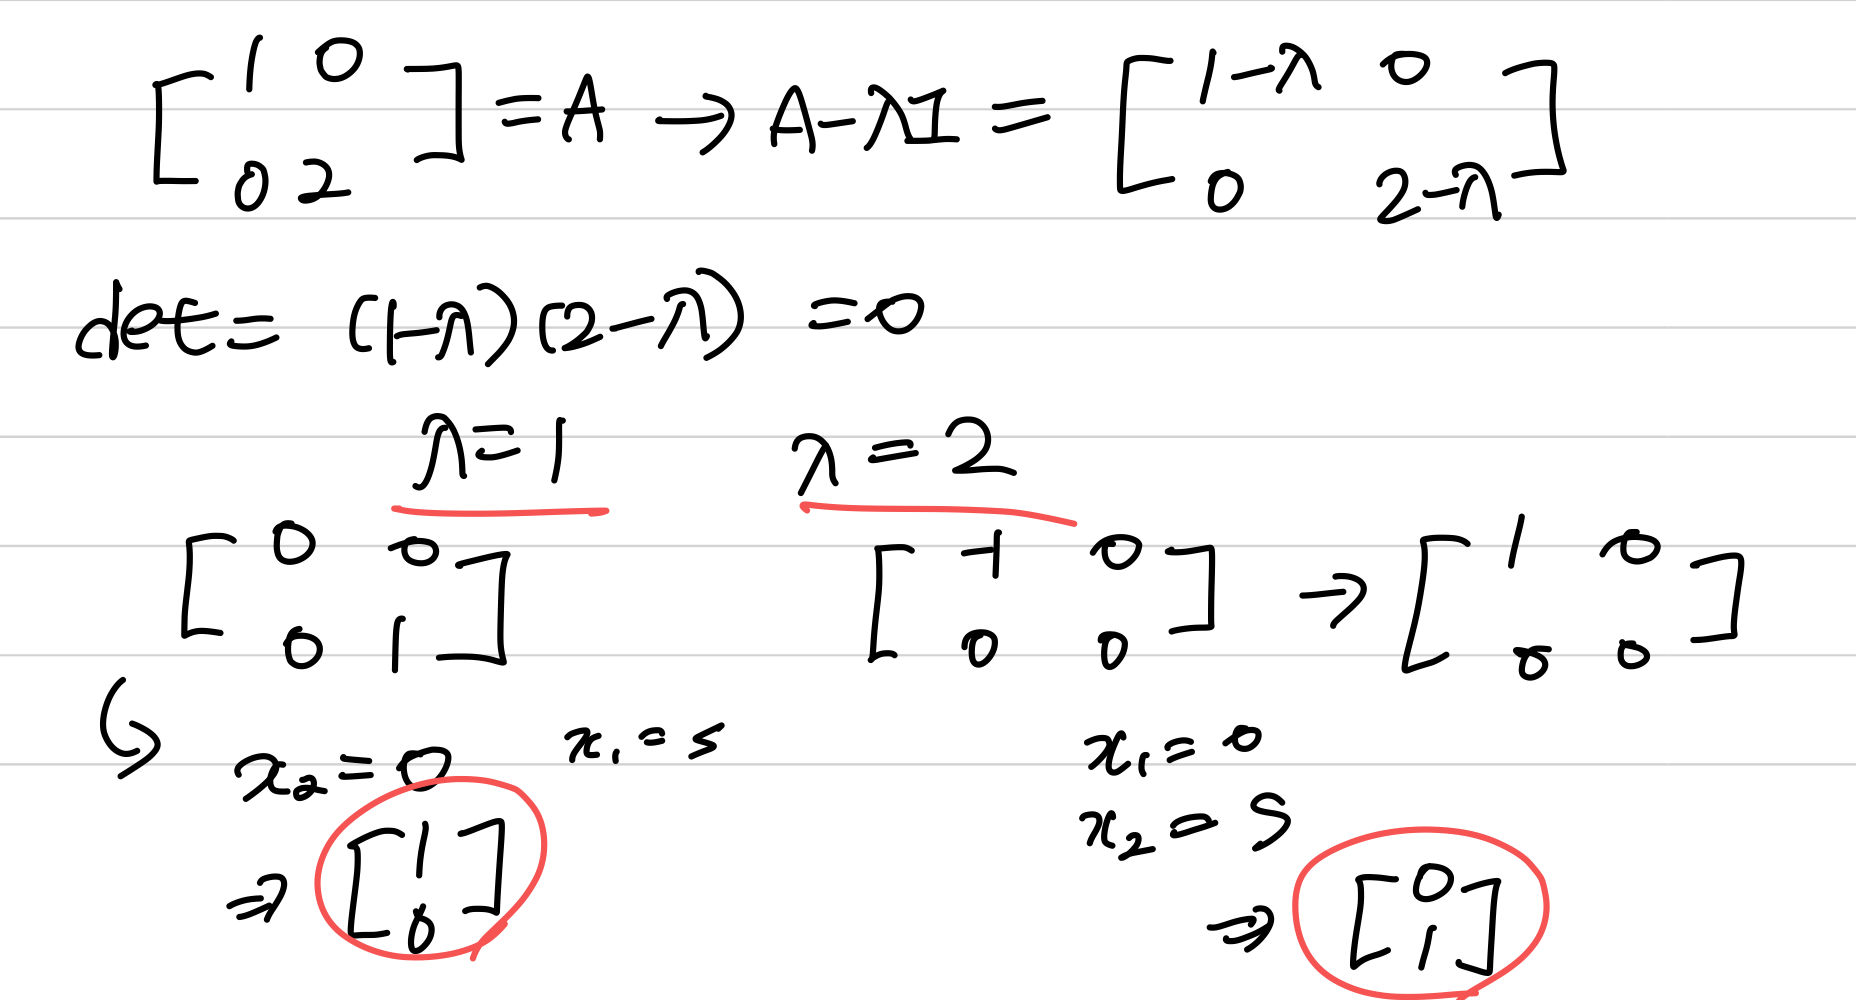 [1 0; 0 2] = A → A-λI = [1-λ 0; 0 2-λ]
det = (1-λ)(2-λ) = 0
λ=1 λ=2
[0 0; 0 1] [-1 0; 0 0] → [1 0; 0 0]
x₂=0 x₁=s x₁=0
x₂=s
⇒ [1; 0] ⇒ [0; 1]